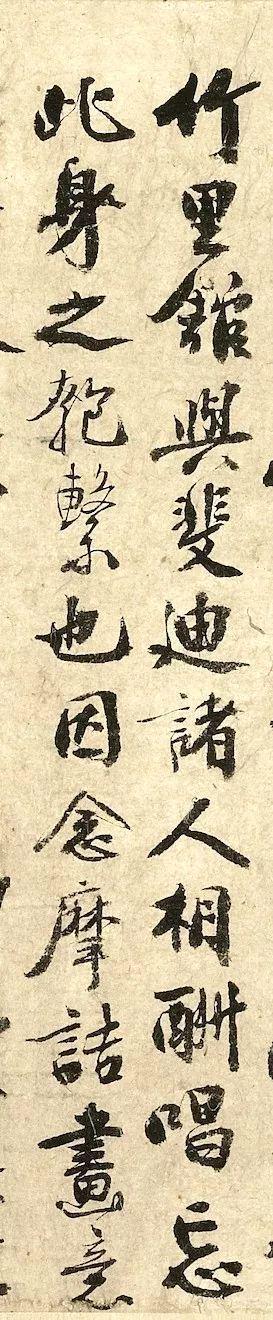 竹里館與斐迪諸人相酬唱忘
此身之匏繫也因念摩詰畫意